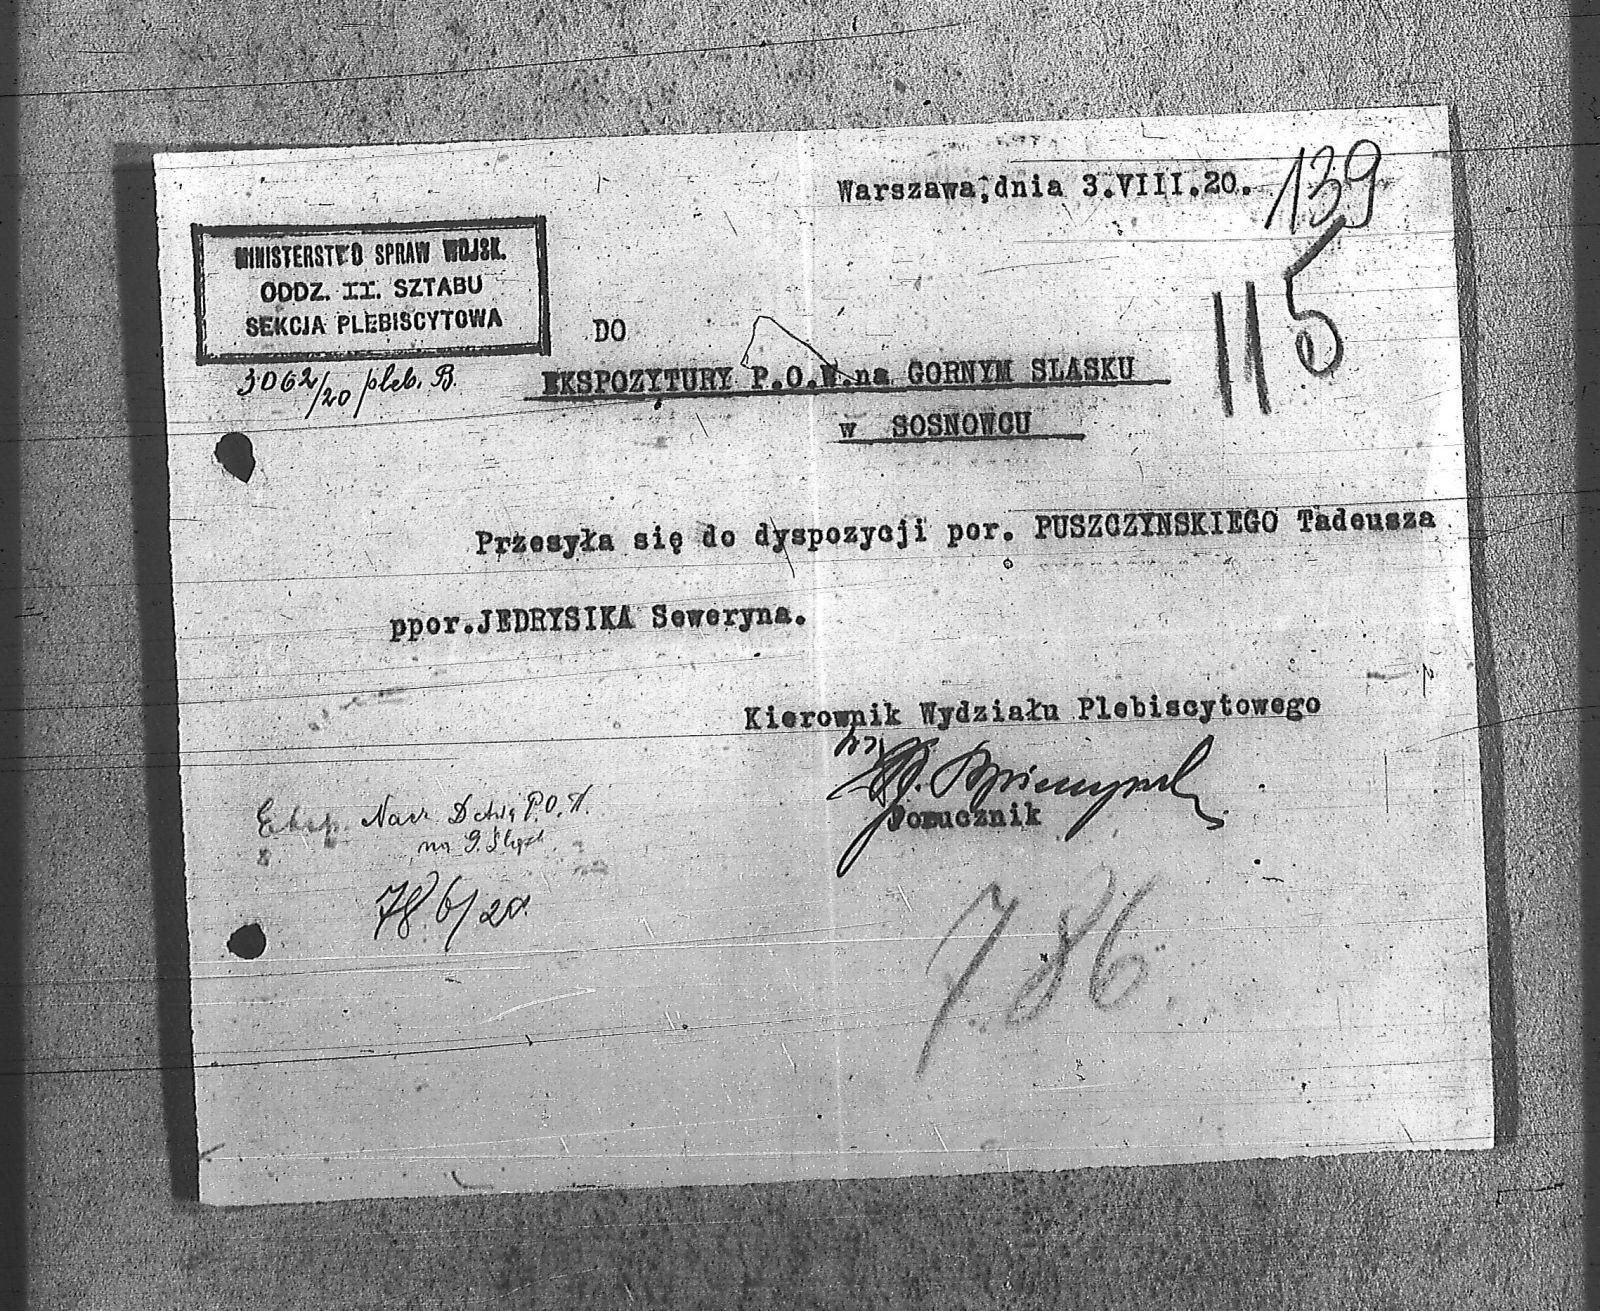 Warszawa,dnia 3.VIII.20.
139
115
MINISTERSTWO SPRAW WOJSK.
ODDZ. II. SZTABU
SEKCJA PLEBISCYTOWA
3062/20 pleb. B.
DO
EKSPOZYTURY P.O.W.na GORNYM SLASKU
w SOSNOWCU
Przesyła się do dyspozycji por. PUSZCZYNSKIEGO Tadeusza
ppor.JEDRYSIKA Seweryna.
Kierownik Wydziału Plebiscytowego
Porucznik
Eksp. Nacz. Dctwa P.O.W.
na G. Śląsk
786/20.
786.